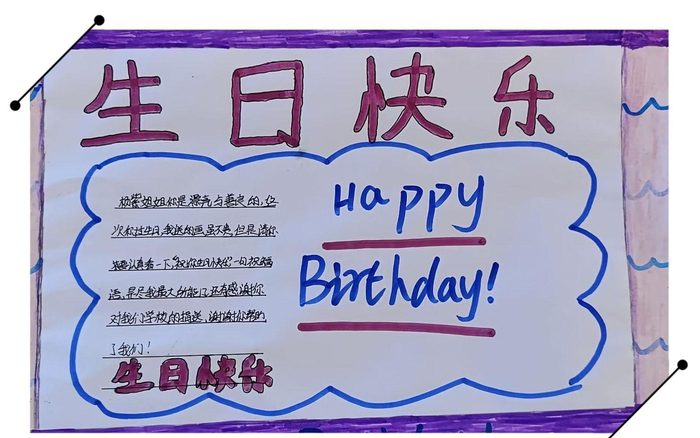 生日快乐
Happy
Birthday!
姐姐你是漂亮与善良的,这
次你过生日,我送的画虽不美,但是请你
认真看一下,"祝你生日快乐"一句祝福
语,是尽我最大所能了,还有感谢你
对我们学校的捐送,谢谢你帮助
了我们!
生日快乐